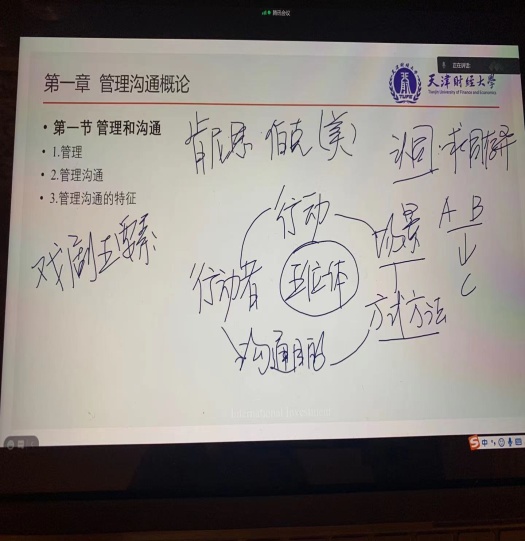 腾讯会议
正在讲话:
第一章 管理沟通概论
天津财经大学
Tianjin University of Finance and Economics
• 第一节 管理和沟通
• 1.管理
• 2.管理沟通
• 3.管理沟通的特征
肯尼思·伯克(美)
认同:求同存异
戏剧五要素
行动
场景
A B
↓
C
行动者
五位一体
方式方法
沟通目的
中